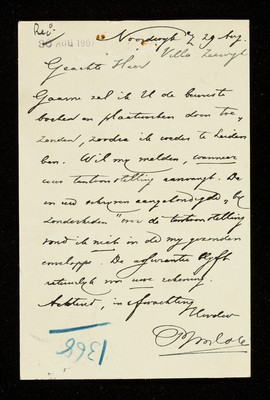 Rec.
30 AUG 190
Noordwijk a/z 29 Aug.
Villa Zeewijk
Geachte Heer
Gaarne zal ik U de bewuste
boeken en plaatwerken doen toe,
zenden, zoodra ik weder te Leiden
ben. Wil my melden, wanneer
uwe tentoonstelling aanvangt. De
in uw schryven aangekondigde, "by
zonderheden" over de tentoonstelling
vond ik niet in de my gezonden
enveloppe. De assurantie blyft
natuurlyk voor uwe rekening.
Achtend, in afwachting
Uwdw
1368